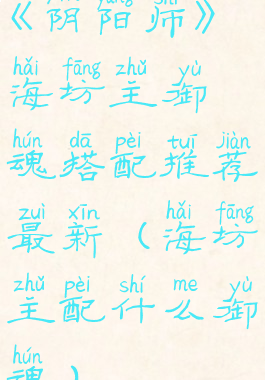 《阴阳师》
hǎi fāng zhǔ yù
海坊主御
hún dā pèi tuī jiàn
魂搭配推荐
zuì xīn hǎi fāng
最新（海坊
zhǔ pèi shí me yù
主配什么御
hún
魂）